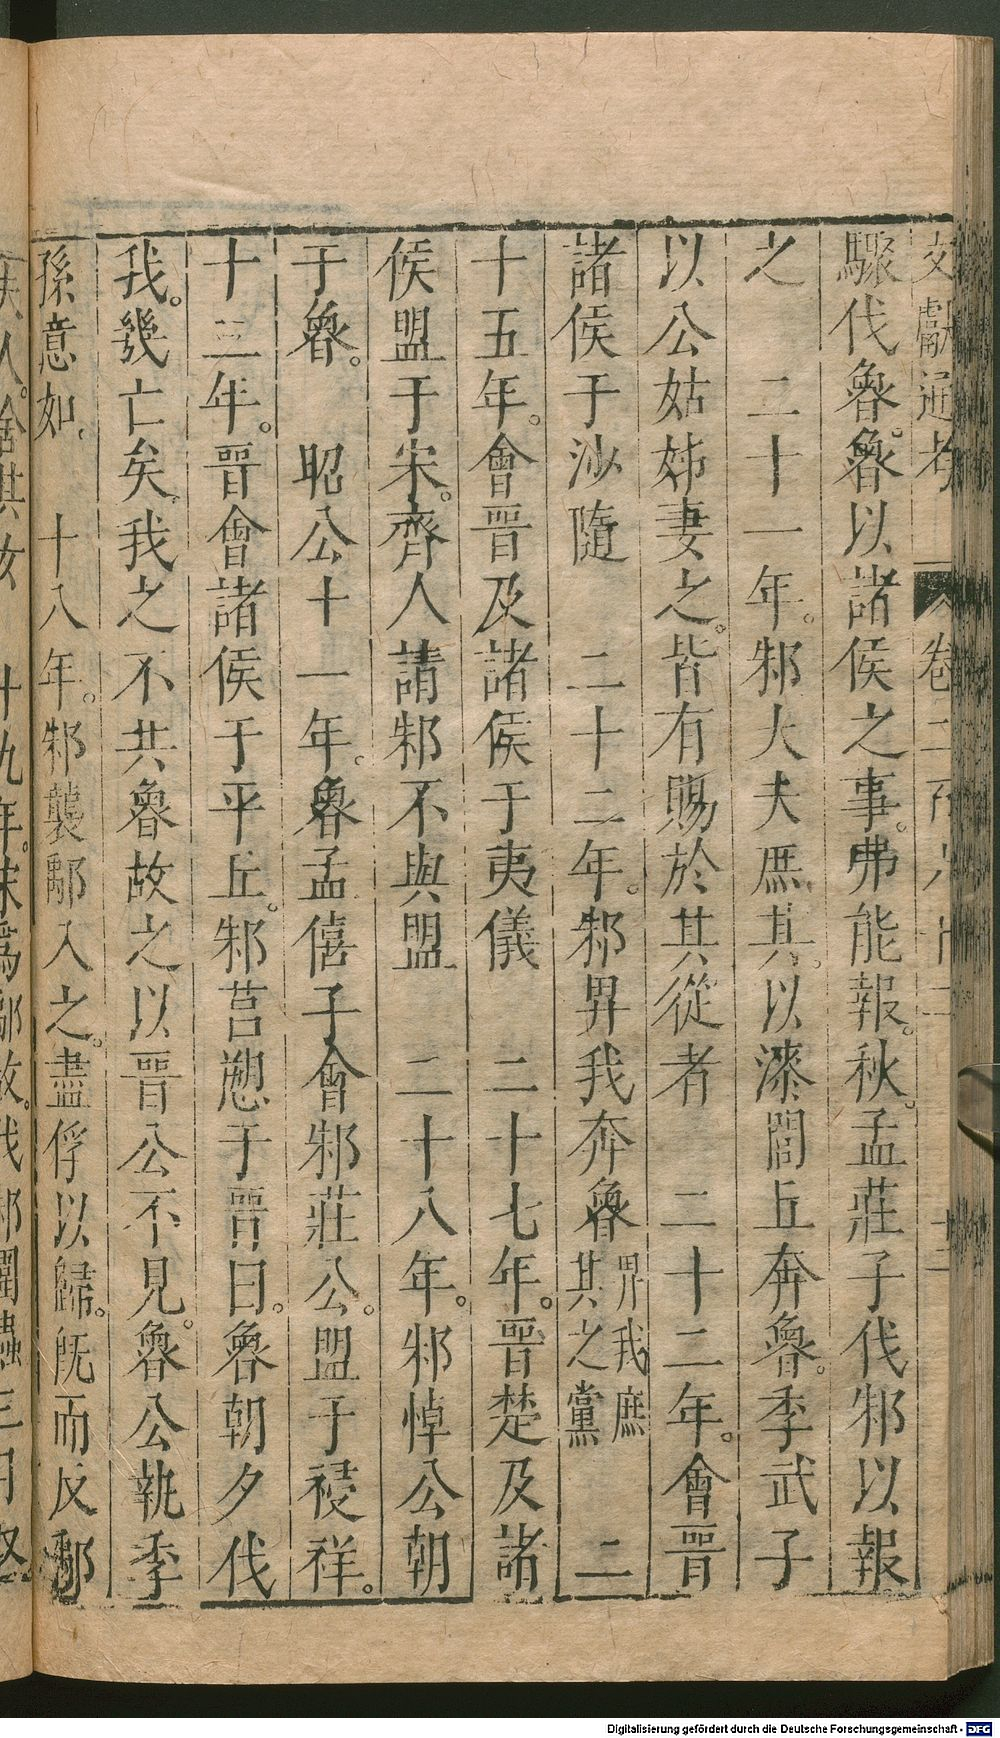 文獻通考 卷二百六十二 十二
驟伐魯。魯以諸侯之事。弗能報。秋。孟莊子伐邾以報
之 二十一年。邾大夫庶其。以漆閭丘奔魯。季武子
以公姑姊妻之。皆有賜於其從者 二十二年。會晉
諸侯于沙隨 二十二年。邾畀我奔魯 畀我庶其之黨 二
十五年。會晉及諸侯于夷儀 二十七年。晉楚及諸
侯盟于宋。齊人請邾不與盟 二十八年。邾悼公朝
于魯。 昭公十一年。魯孟僖子會邾莊公。盟于祲祥。
十三年。晉會諸侯于平丘。邾莒愬于晉曰。魯朝夕伐
我。幾亡矣。我之不共魯故之以晉公不見。魯公執季
孫意如。 十八年。邾襲鄅入之。盡俘以歸。既而反鄅
夫人。舍其女 十九年。宋為鄅故。伐邾圍蟲三月
Digitalisierung gefördert durch die Deutsche Forschungsgemeinschaft - DFG